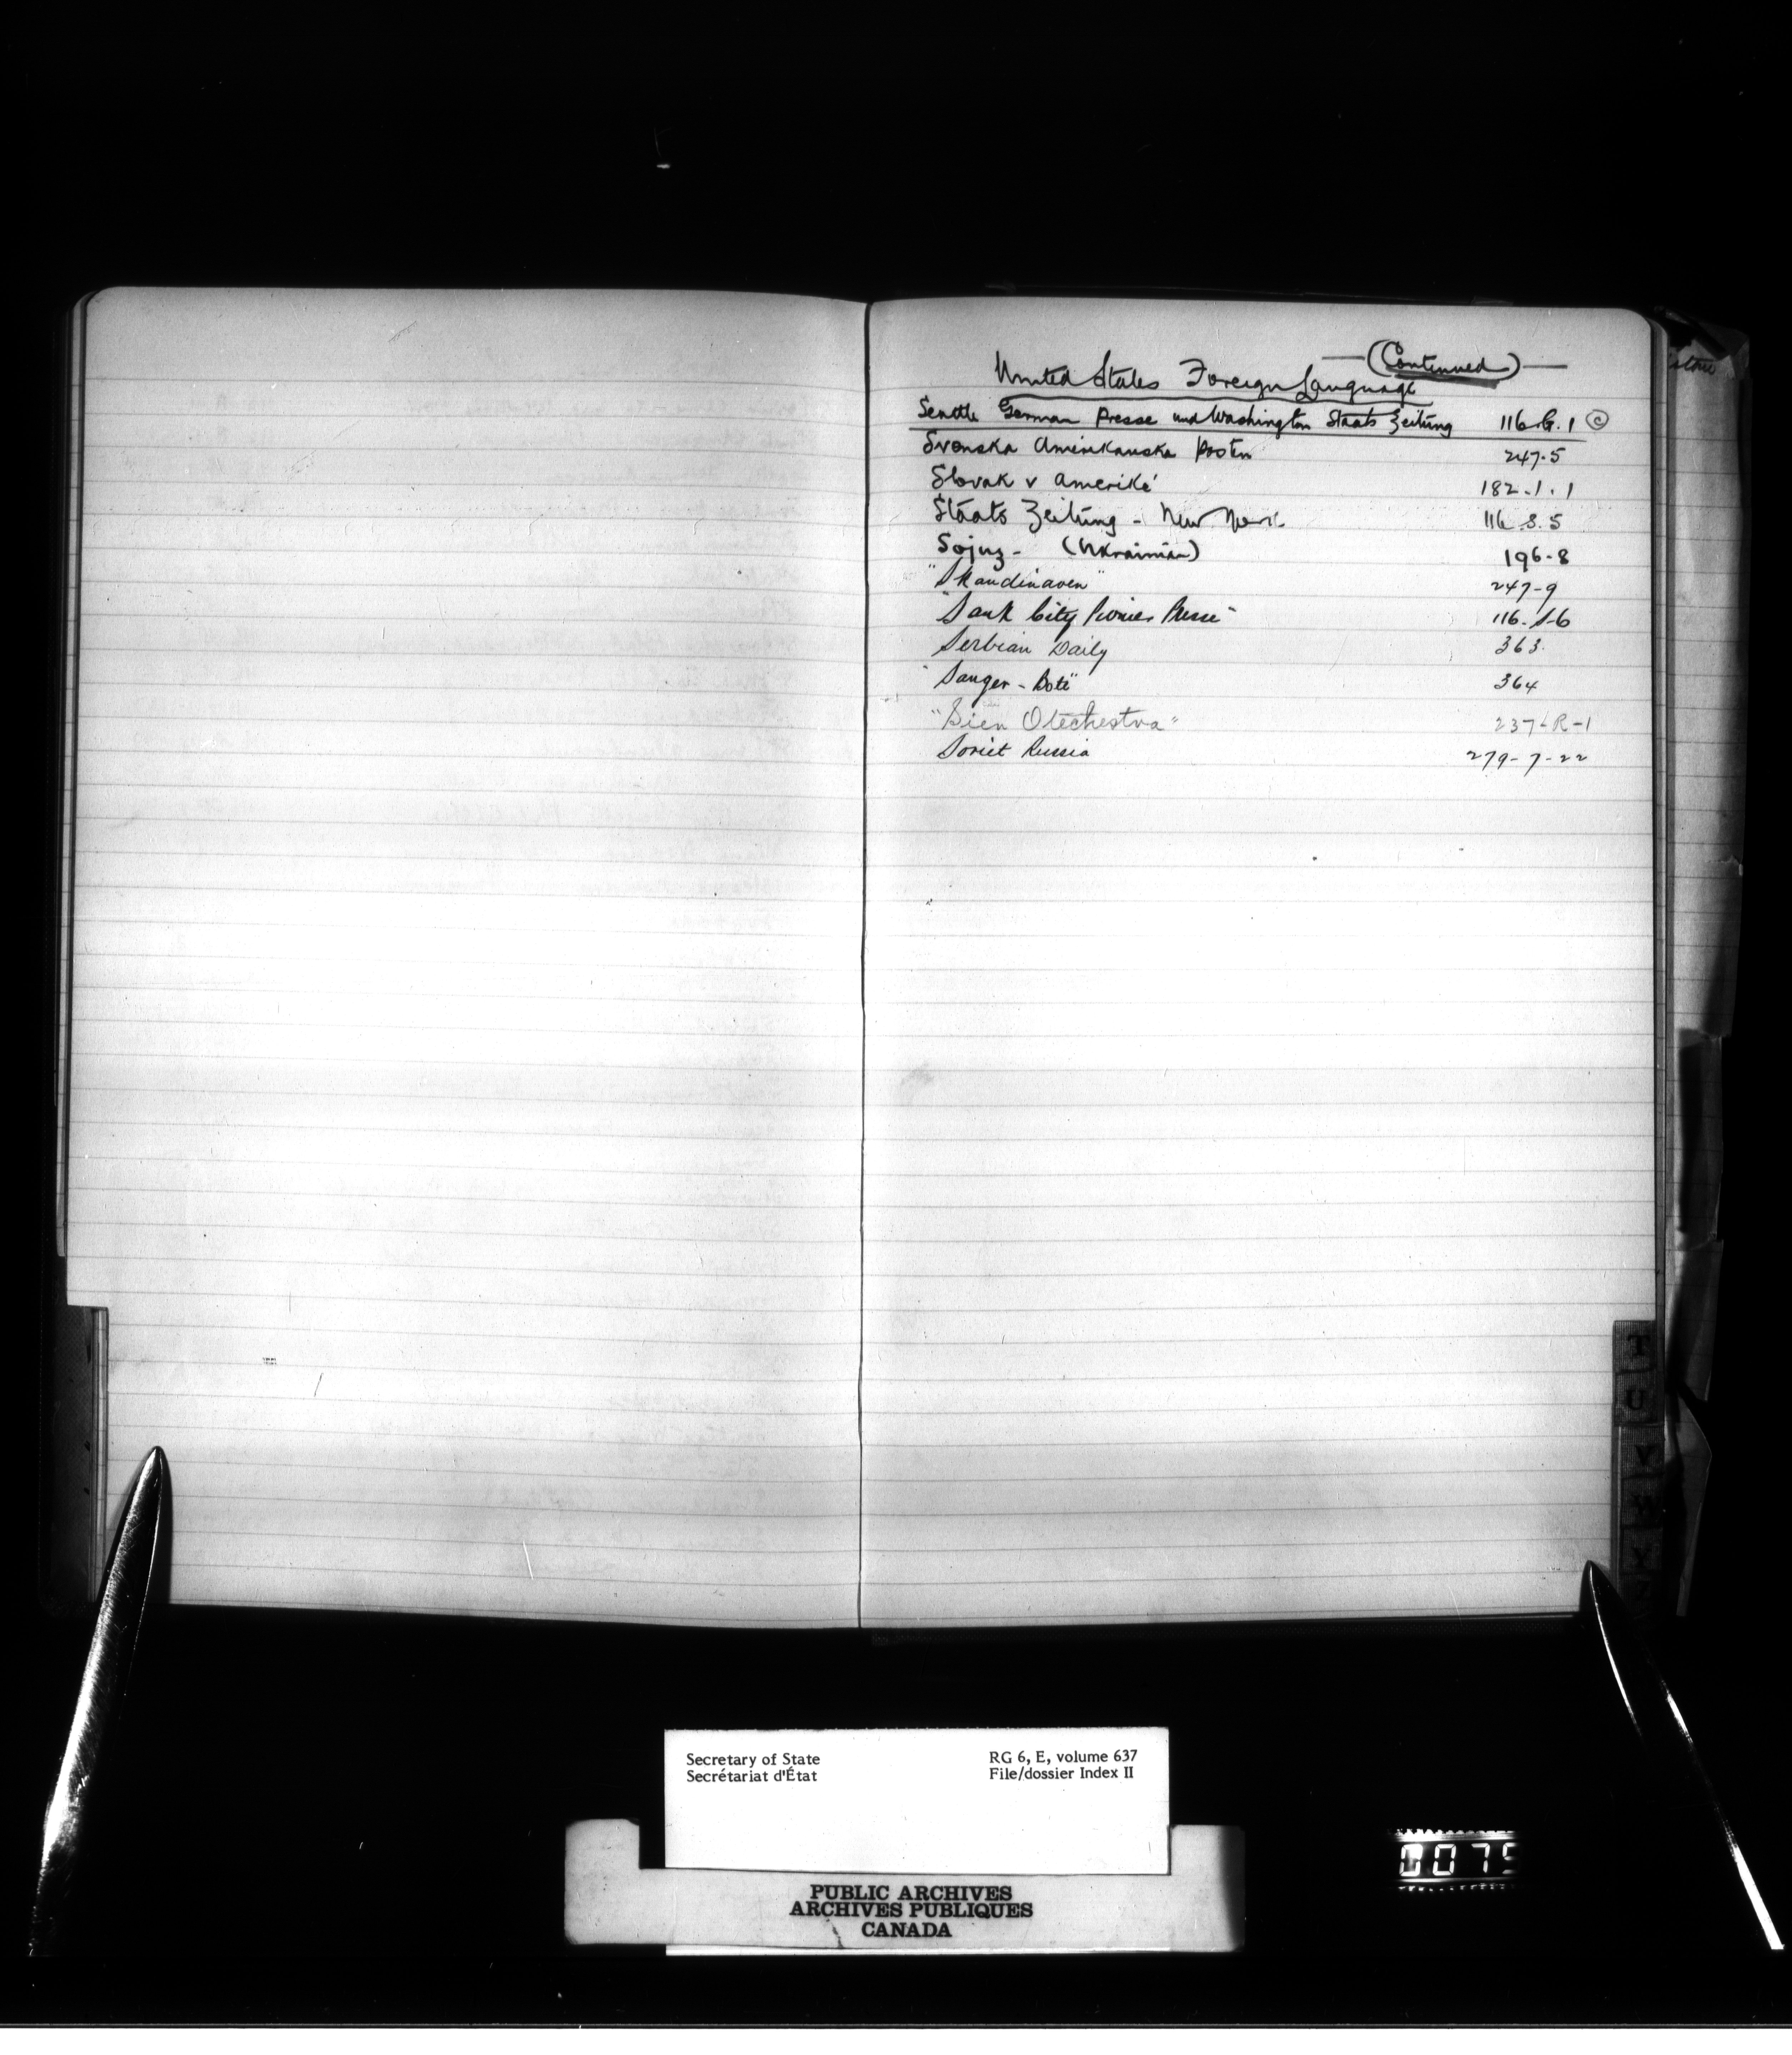 (Continued)
United States Foreign Language
Seattle German Presse und Washington Staats Zeitung 116.G.1 ©
Svenska Amerikanska Posten 247.5
Slovak v Ameriké 182.1.1
Staats Zeitung - New York 116.S.5
Sojuz - (Ukrainian) 196-8
"Skandinaven" 247-9
"Sauk City Pionier Presse" 116-S-6
Serbian Daily 363.
"Sanger-Bote" 364
"Sien Otechestva" 237-R-1
Soviet Russia 279-7-22
T
U
V
W
X
Z
Secretary of State RG 6, E, volume 637
Secrétariat d'État File/dossier Index II
0075
PUBLIC ARCHIVES
ARCHIVES PUBLIQUES
CANADA